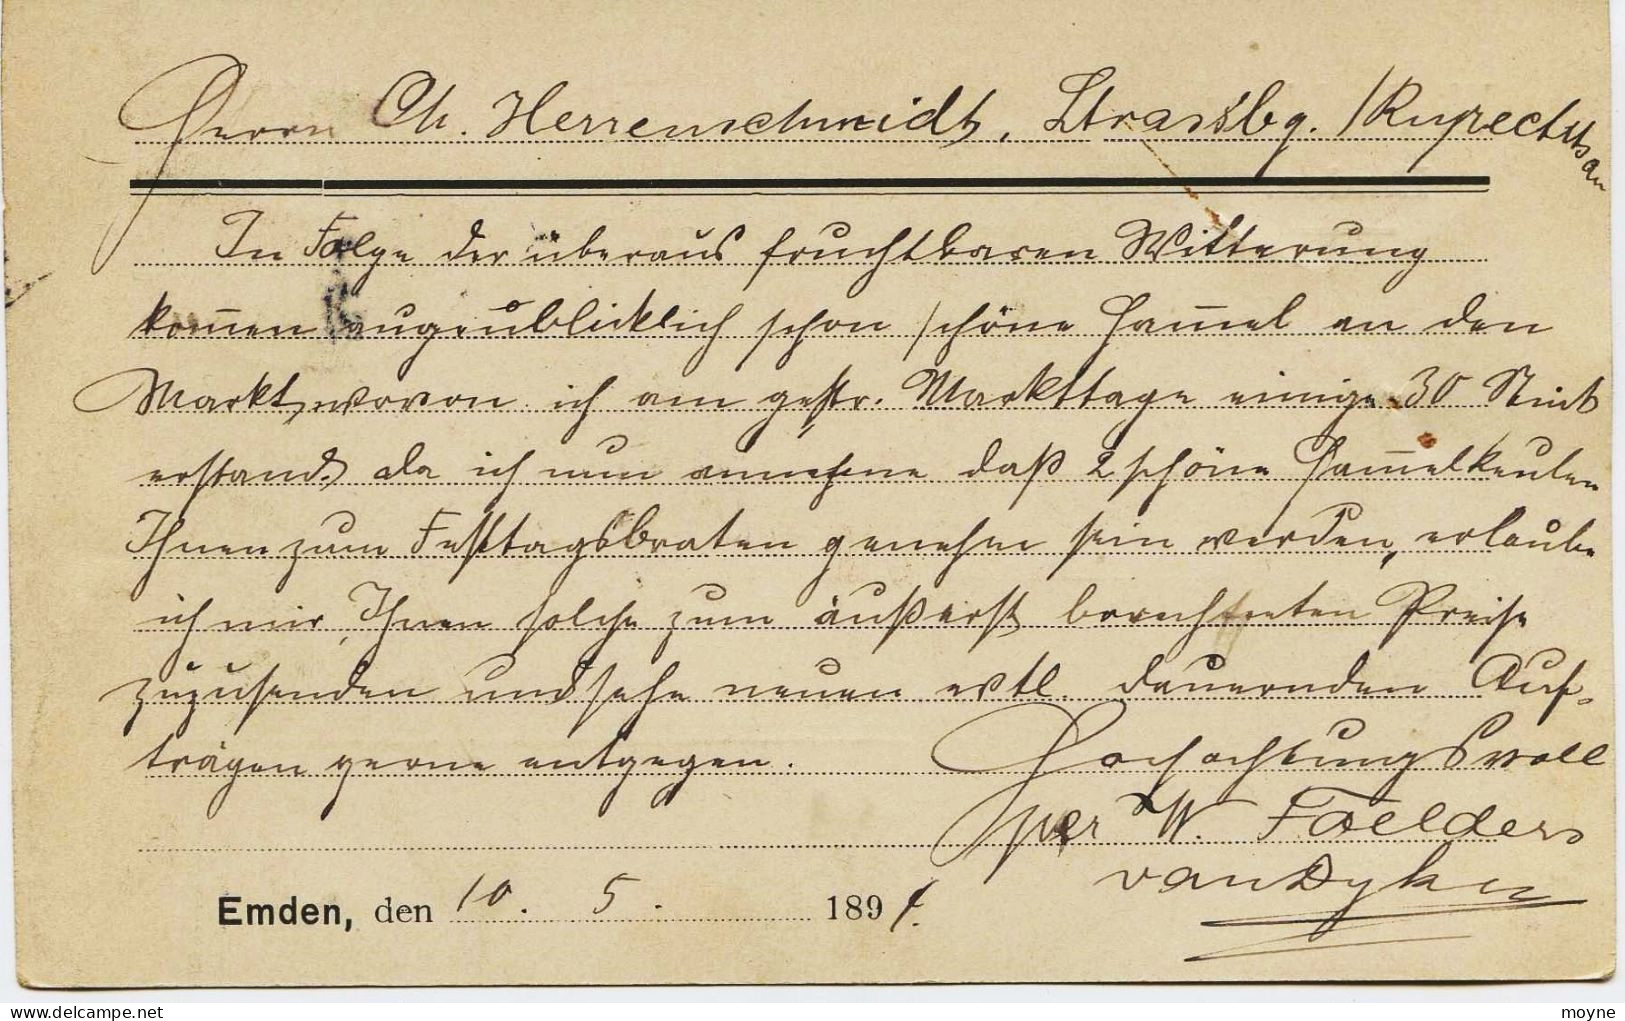 Herrn Ch. Herrenschmidt, Strassbg. / Ruprechtsau
In Folge der überaus fruchtbaren Witterung
kom̄en augenblicklich schon schöne Ham̄el an den
Markt, wovon ich am gestr. Markttage einige 30 Stück
erstand. da ich nun annehme daß 2 schöne Ham̄elkeulen
Ihnen zum Festtagsbraten genehm sein werden, erlaube
ich mir, Ihnen solche zum äußerst berechneten Preise
zuzusenden und sehe neuen evtl. dauernden Auf-
trägen gerne entgegen. Hochachtungsvoll
per W. Foelders
van Dyken
Emden, den 10. 5. 1891.
delcampe.net
moyne